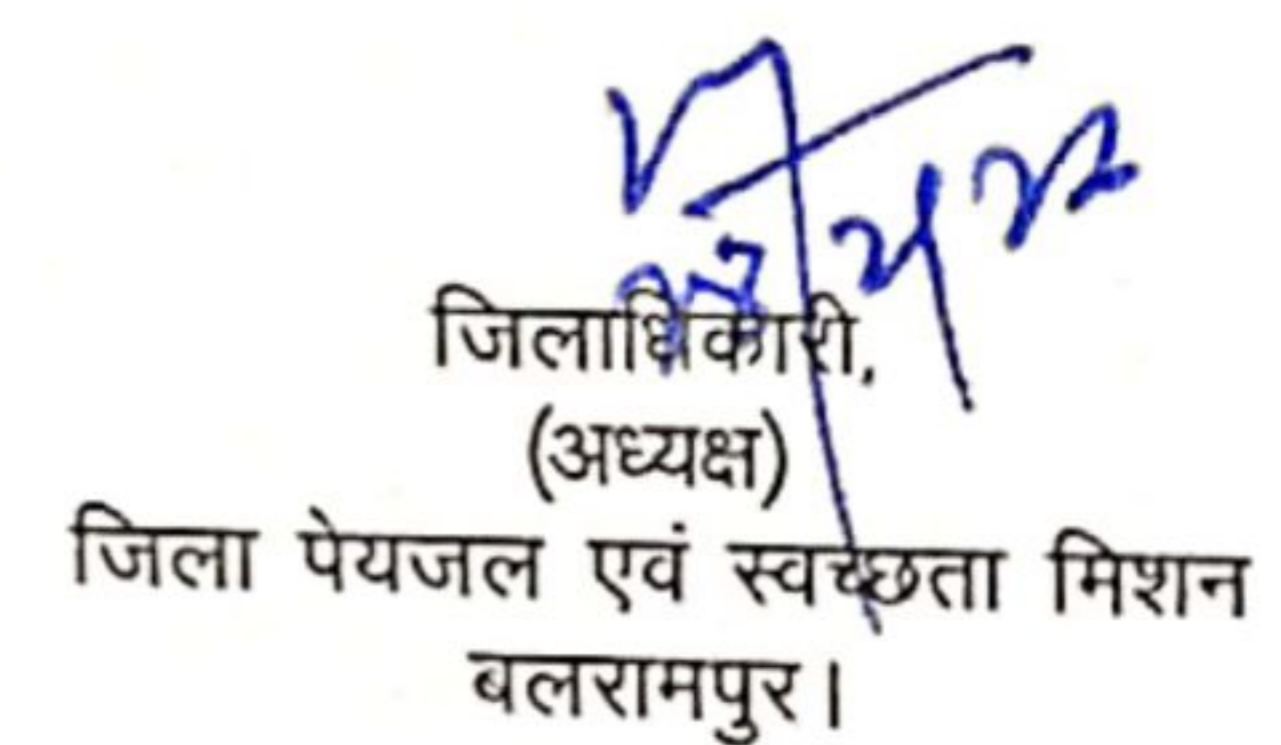 जिलाधिकारी,
(अध्यक्ष)
जिला पेयजल एवं स्वच्छता मिशन
बलरामपुर।